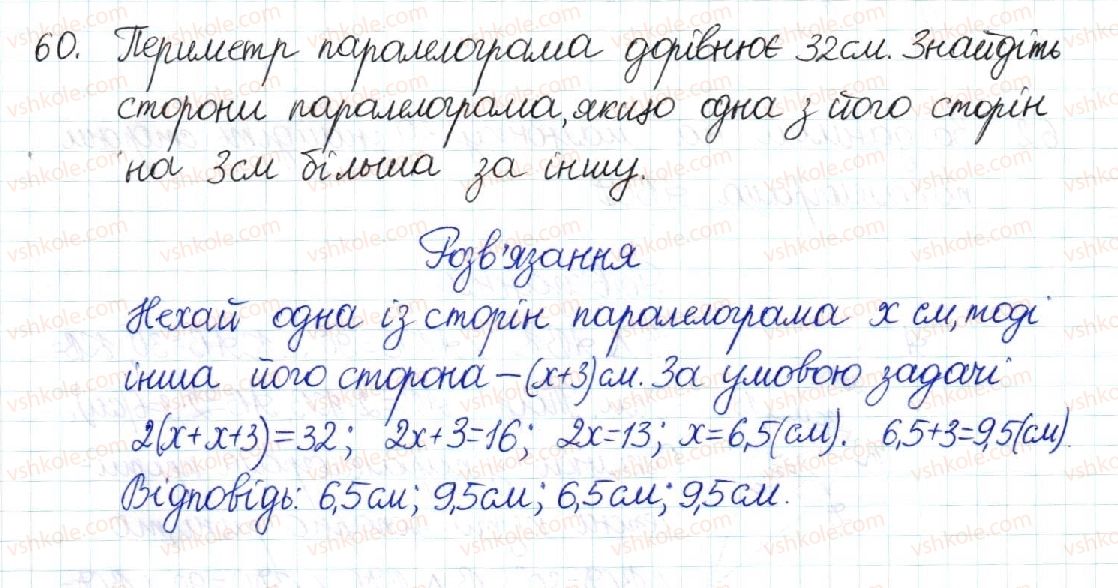 60. Периметр паралелограма дорівнює 32см. Знайдіть
сторони паралелограма, якщо одна з його сторін
на 3см більша за іншу.
Розв'язання
Нехай одна із сторін паралелограма x см, тоді
інша його сторона – (x+3) см. За умовою задачі
2(x+x+3)=32; 2x+3=16; 2x=13; x=6,5(см). 6,5+3=9,5(см)
Відповідь: 6,5см; 9,5см; 6,5см; 9,5см.